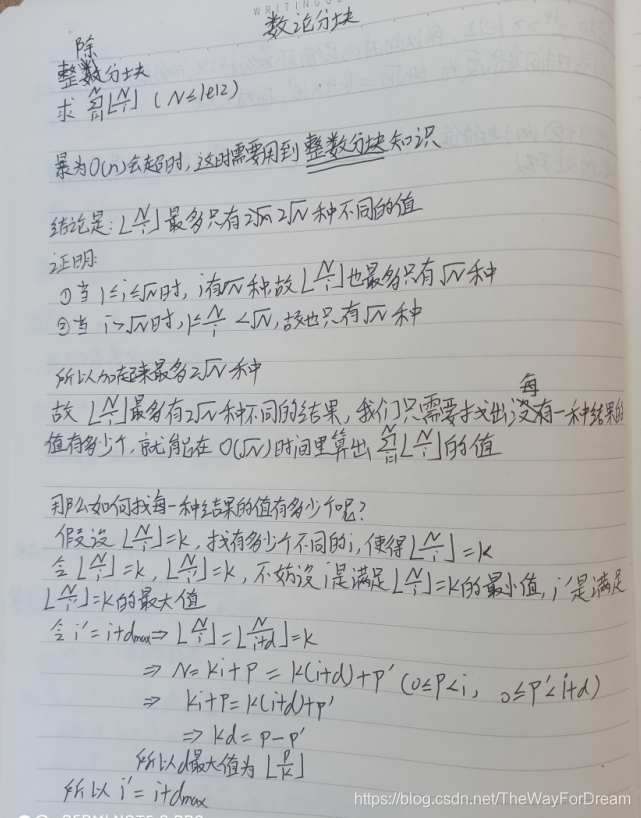 WRITING
数论分块
除
整数分块
求 ∑_{i=1}^{N}⌊N/i⌋ (N≤1e12)
暴为O(n)会超时,这时需要用到 整数分块知识
结论是:⌊N/i⌋最多只有2√n 2√N种不同的值
证明:
①当 1≤i≤√N时, i有√N种,故⌊N/i⌋也最多只有√N种
②当 i>√N时, 1≤N/i<√N,故也只有√N种
所以加起来最多2√N种
每
故⌊N/i⌋最多有2√N种不同的结果,我们只需要找出没有一种结果的
值有多少个,就能在O(√N)时间里算出∑_{i=1}^{N}⌊N/i⌋的值
那么如何找每一种结果的值有多少个呢?
假设⌊N/i⌋=k,找有多少个不同的i,使得⌊N/i⌋=k
令⌊N/i⌋=k,⌊N/i'⌋=k,不妨设i是满足⌊N/i⌋=k的最小值,i'是满足
⌊N/i⌋=k的最大值
令i'=i+dmax⇒⌊N/i⌋=⌊N/(i+d)⌋=k
⇒ N=ki+P=k(i+d)+P' (0≤P<i, 0≤P'<i+d)
⇒ ki+P=k(i+d)+P'
⇒ kd=P-P'
所以d最大值为⌊P/k⌋
所以i'=i+dmax
https://blog.csdn.net/TheWayForDream